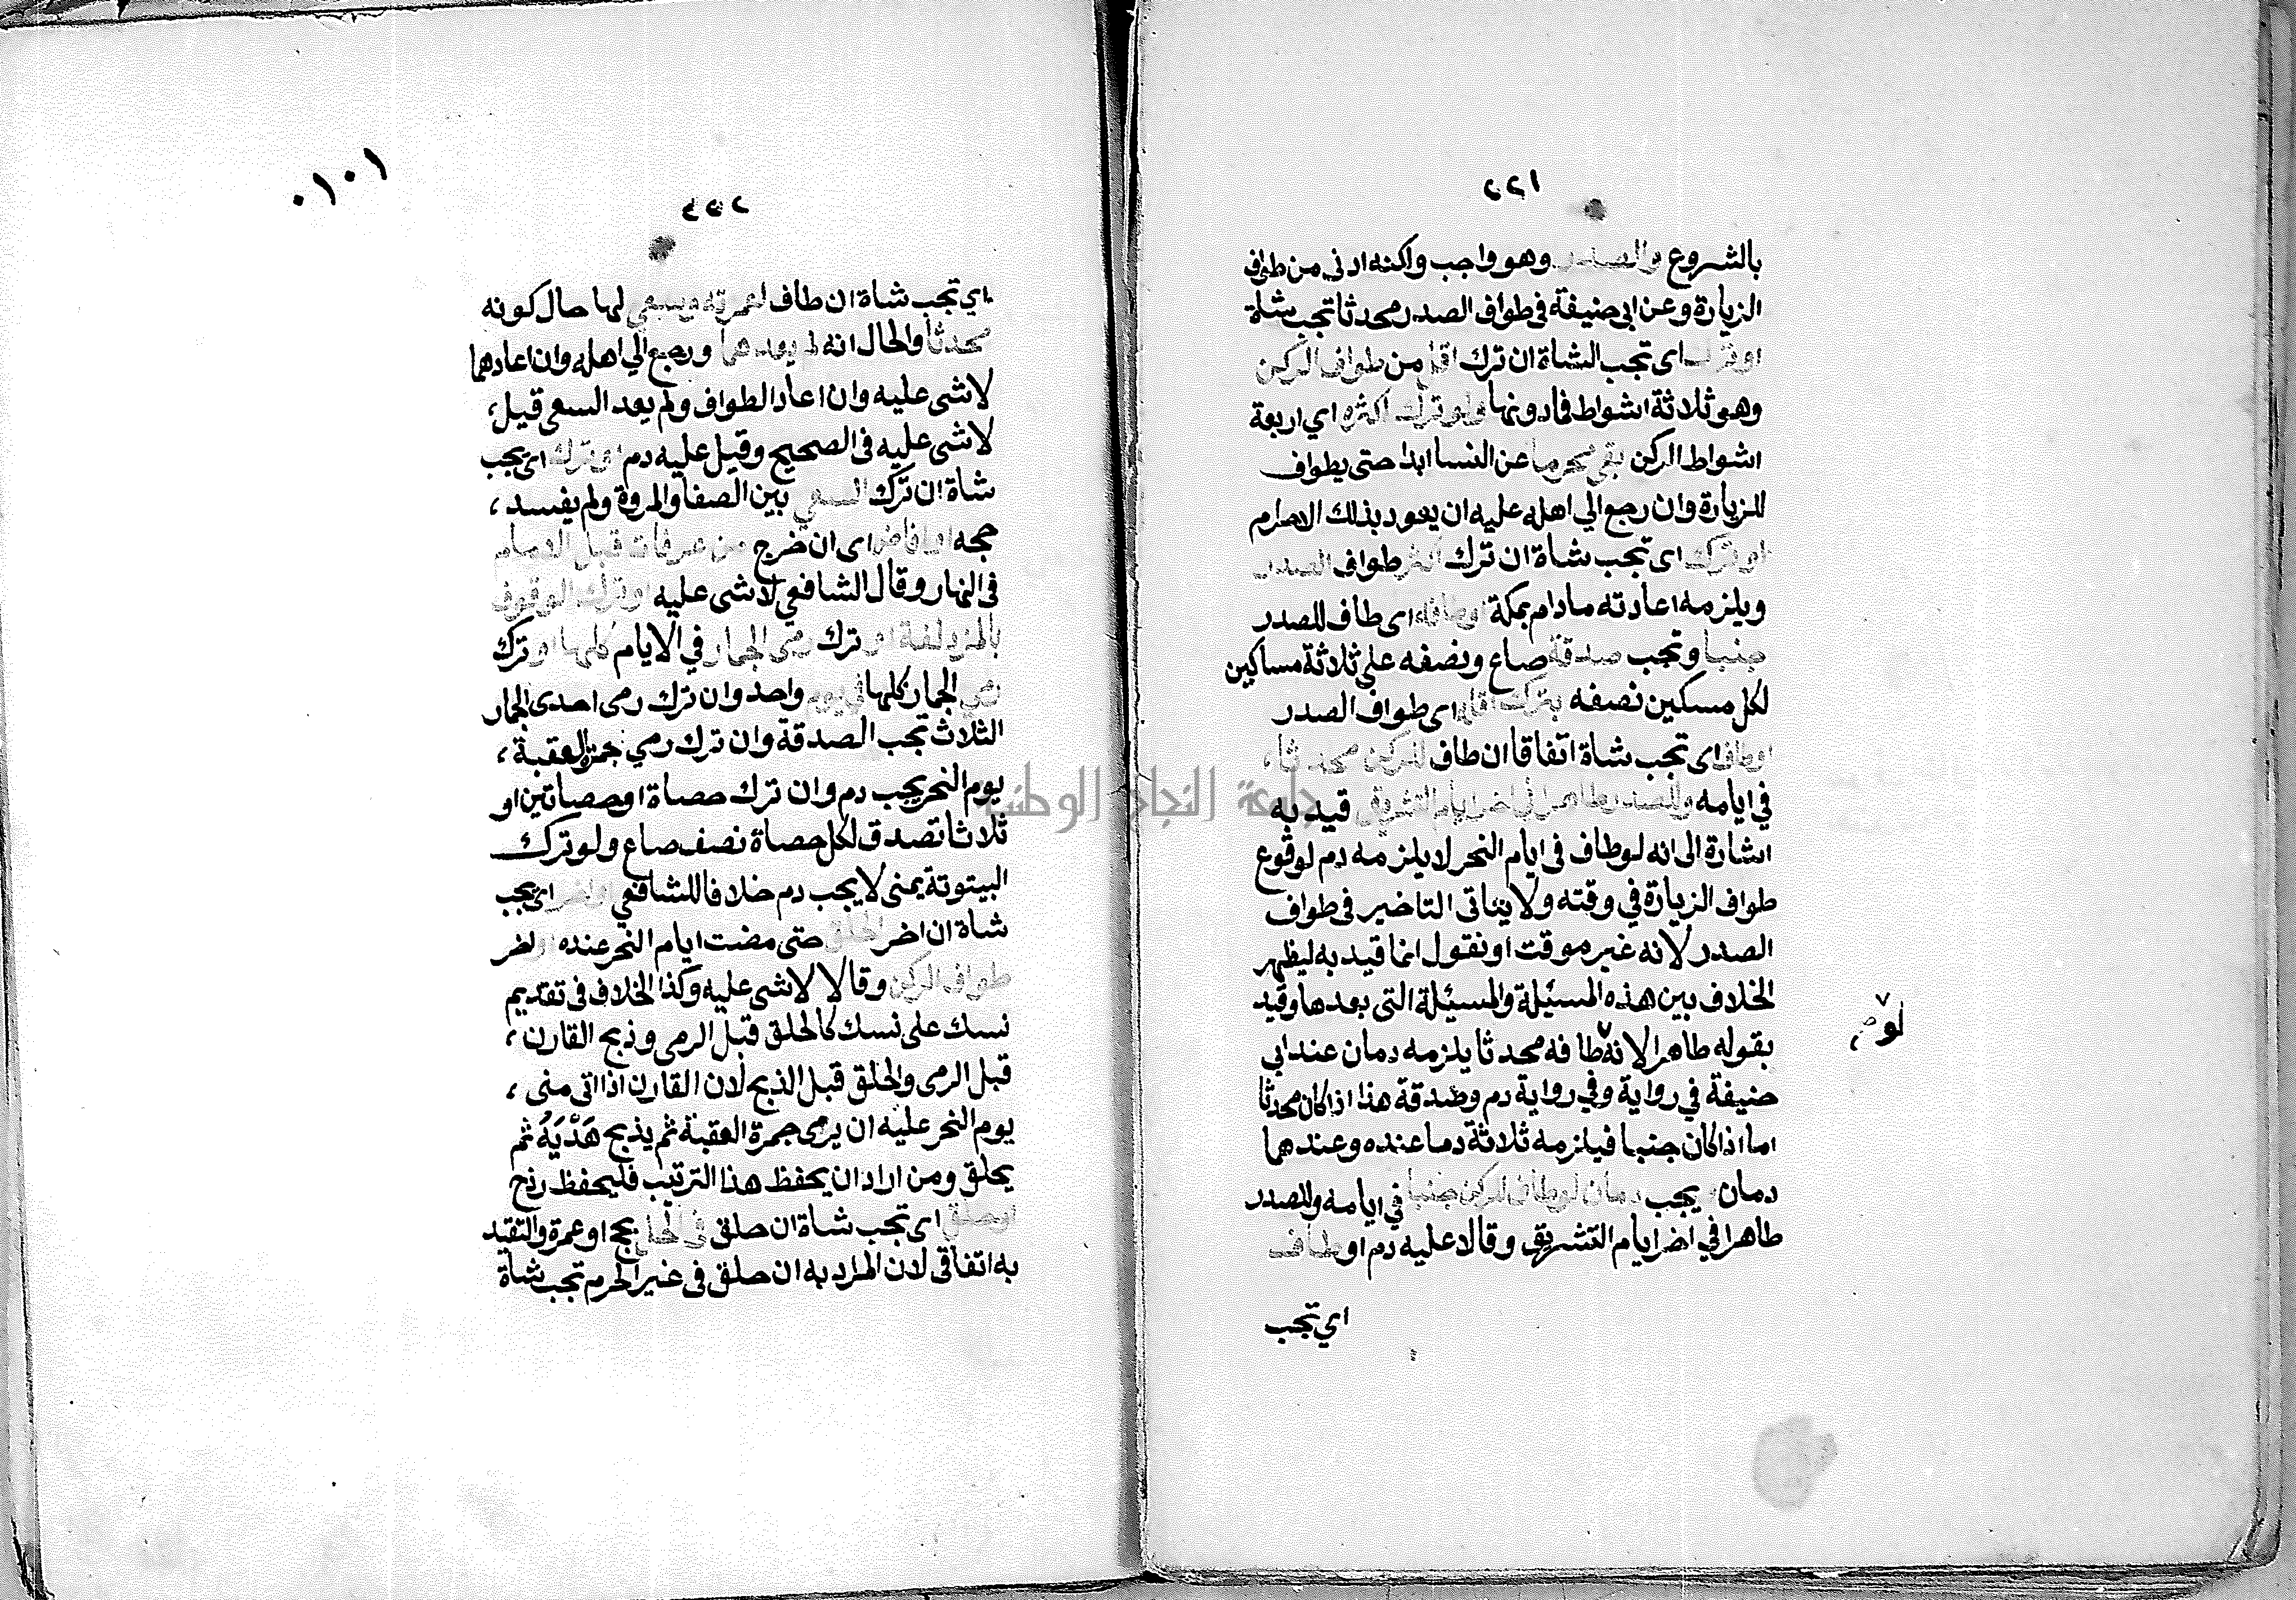 ٢٢١
بالشروع والصدر وهو واجب ولكنه ادنى من طواف
الزيارة وعن ابى حنيفة فى طواف الصدر محدثا تجب شاة
او ترك اى تجب الشاة ان ترك اقل من طواف الركن
وهو ثلاثة اشواط فادونها ولو ترك اكثره اي اربعة
اشواط الركن بقى محرما عن النسا ابدا حتى يطواف
للزيارة وان رجع الي اهله عليه ان يعود بذلك الاحرام
او ترك اى تجب شاة ان ترك اكثر طواف الصدر
ويلزمه اعادته مادام بمكة او طافه اى طاف للصدر
جنبا وتجب صدقة صاع ونصفه على ثلاثة مساكين
لكل مسكين نصفه بترك اقله اى طواف الصدر
او طاف اى تجب شاة اتفاقا ان طاف للركن محدثا،
في ايامه وللصدر طاهرا في اخر ايام التشريق قيد به
اشارة الى انه لو طاف فى ايام النحر لا يلزمه دم لوقوع
طواف الزيارة في وقته ولا يتاتى التاخير فى طواف
الصدر لانه غير موقت او نقول انما قيد به ليظهر
الخلاف بين هذه المسئلة والمسئلة التى بعدها وقيد
بقوله طاهرا لانه طافه محدثا يلزمه دمان عند ابي
لو صح
حنيفة في رواية وفي رواية دم وصدقة هذا اذا كان محدثا
اما اذا كان جنبا فيلزمه ثلاثة دما عنده وعندهما
دمان ويجب دمان لو طاف للركن جنبا في ايامه وللصدر
طاهرا في اخر ايام التشريق وقالا عليه دم او طاف
اي تجب
١٠١٠
٤٥٢
اي تجب شاة ان طاف لعمرته وسعى لها حال كونه
محدثا والحال انه لم يعدهما ورجع الي اهله وان اعادهما
لا شى عليه وان اعاد الطواف ولم يعد السعى قيل،
لا شى عليه فى الصحيح وقيل عليه دم او ترك اى يجب
شاة ان ترك السعي بين الصفا والمروة ولم يفسد،
حجه او افاض اى ان خرج من عرفات قبل الامام
فى النهار وقال الشافعي لا شى عليه او ترك الوقوف
بالمزدلفة او ترك رمى الجمار في الايام كلها او ترك
رمي الجمار كلها في يوم واحد وان ترك رمى احدى الجمار
الثلاث تجب الصدقة وان ترك رمي جمرة العقبة،
يوم النحر يجب دم وان ترك حصاة او حصاتين او
ثلاثا تصدق لكل حصاة نصف صاع ولو ترك
البيتوتة بمنى لا يجب دم خلافا للشافعي او اخر اى يجب
شاة ان اخر الحلق حتى مضت ايام النحر عنده او اخر
طواف الركن وقالا لا شى عليه وكذا الخلاف فى تقديم
نسك على نسك كالحلق قبل الرمى وذبح القارن،
قبل الرمى والحلق قبل الذبح لان القارن اذا اتى منى،
يوم النحر عليه ان يرمى جمرة العقبة ثم يذبح هَدْيَهُ ثم
يحلق ومن اراد ان يحفظ هذا الترتيب فليحفظ رذح
او حلق اى تجب شاة ان حلق فى الحل بحج او عمرة والتقيد
به اتفاقى لان المراد به ان حلق فى غير الحرم تجب شاة
جامعة النجاح الوطنية